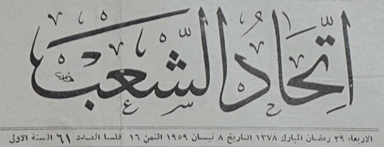 اتِّحادُ الشَّعبِ
الاربعاء ٢٩ رمضان المبارك ١٣٧٨ التاريخ ٨ نيسان ١٩٥٩ الثمن ١٦ فلسا العدد ٦١ السنة الاولى